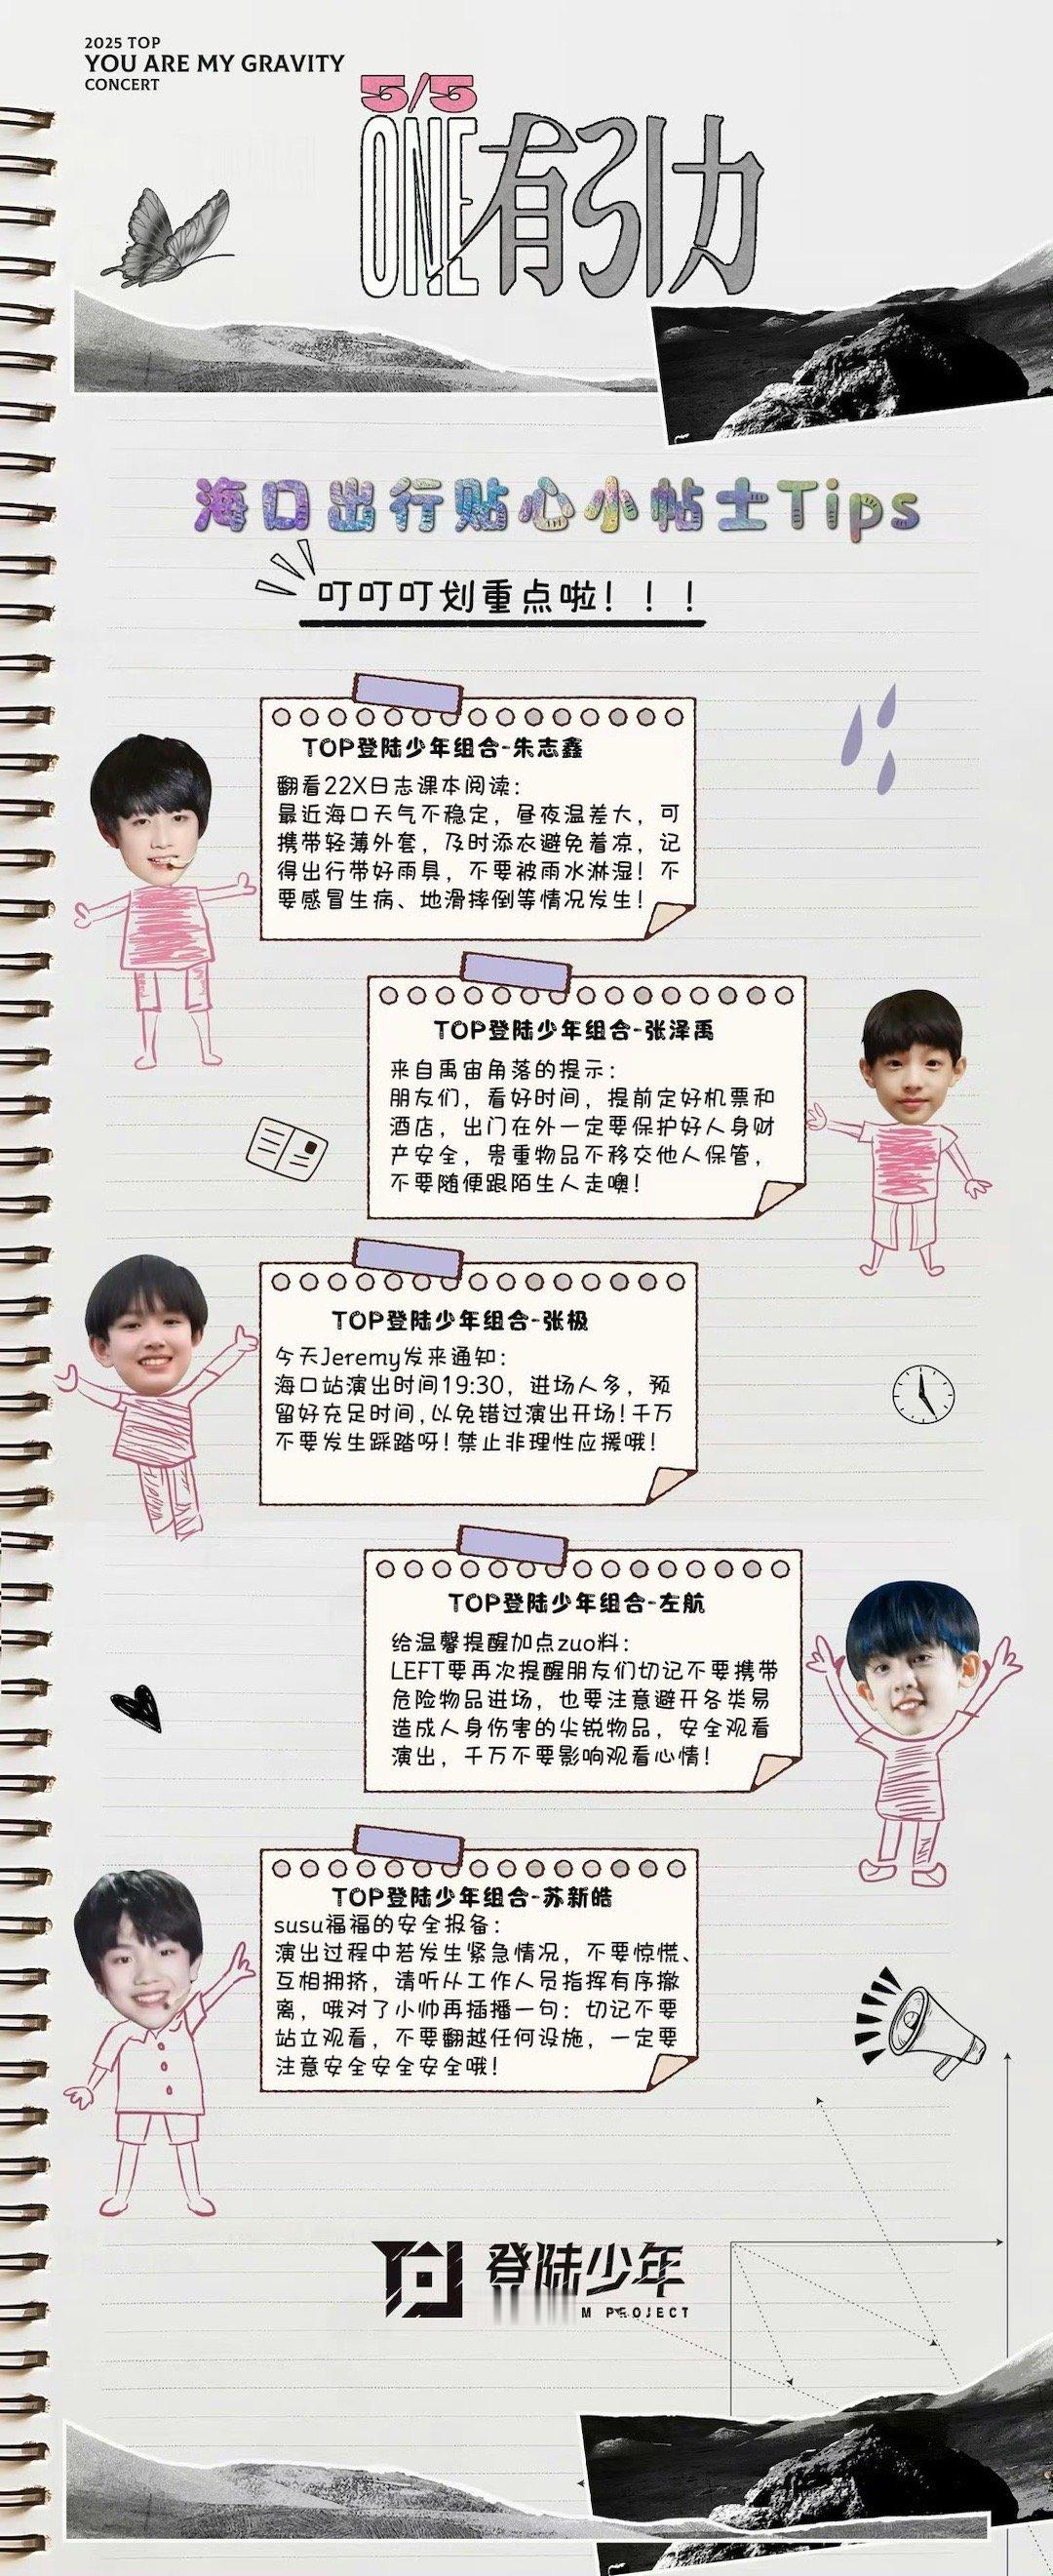 2025 TOP
YOU ARE MY GRAVITY
CONCERT
5/5
ONE有引力
海口出行贴心小帖士Tips
叮叮叮划重点啦！！！
TOP登陆少年组合-朱志鑫
翻看22X日志课本阅读：
最近海口天气不稳定，昼夜温差大，可
携带轻薄外套，及时添衣避免着凉，记
得出行带好雨具，不要被雨水淋湿！不
要感冒生病、地滑摔倒等情况发生！
TOP登陆少年组合-张泽禹
来自禹宙角落的提示：
朋友们，看好时间，提前定好机票和
酒店，出门在外一定要保护好人身财
产安全，贵重物品不移交他人保管，
不要随便跟陌生人走噢！
TOP登陆少年组合-张极
今天Jeremy发来通知：
海口站演出时间19:30，进场人多，预
留好充足时间,以免错过演出开场!千万
不要发生踩踏呀!禁止非理性应援哦！
TOP登陆少年组合-左航
给温馨提醒加点zuo料：
LEFT要再次提醒朋友们切记不要携带
危险物品进场，也要注意避开各类易
造成人身伤害的尖锐物品，安全观看
演出，千万不要影响观看心情！
TOP登陆少年组合-苏新皓
susu福福的安全报备：
演出过程中若发生紧急情况，不要惊慌、
互相拥挤，请听从工作人员指挥有序撤
离，哦对了小帅再插播一句：切记不要
站立观看，不要翻越任何设施，一定要
注意安全安全安全哦！
登陆少年
M PROJECT